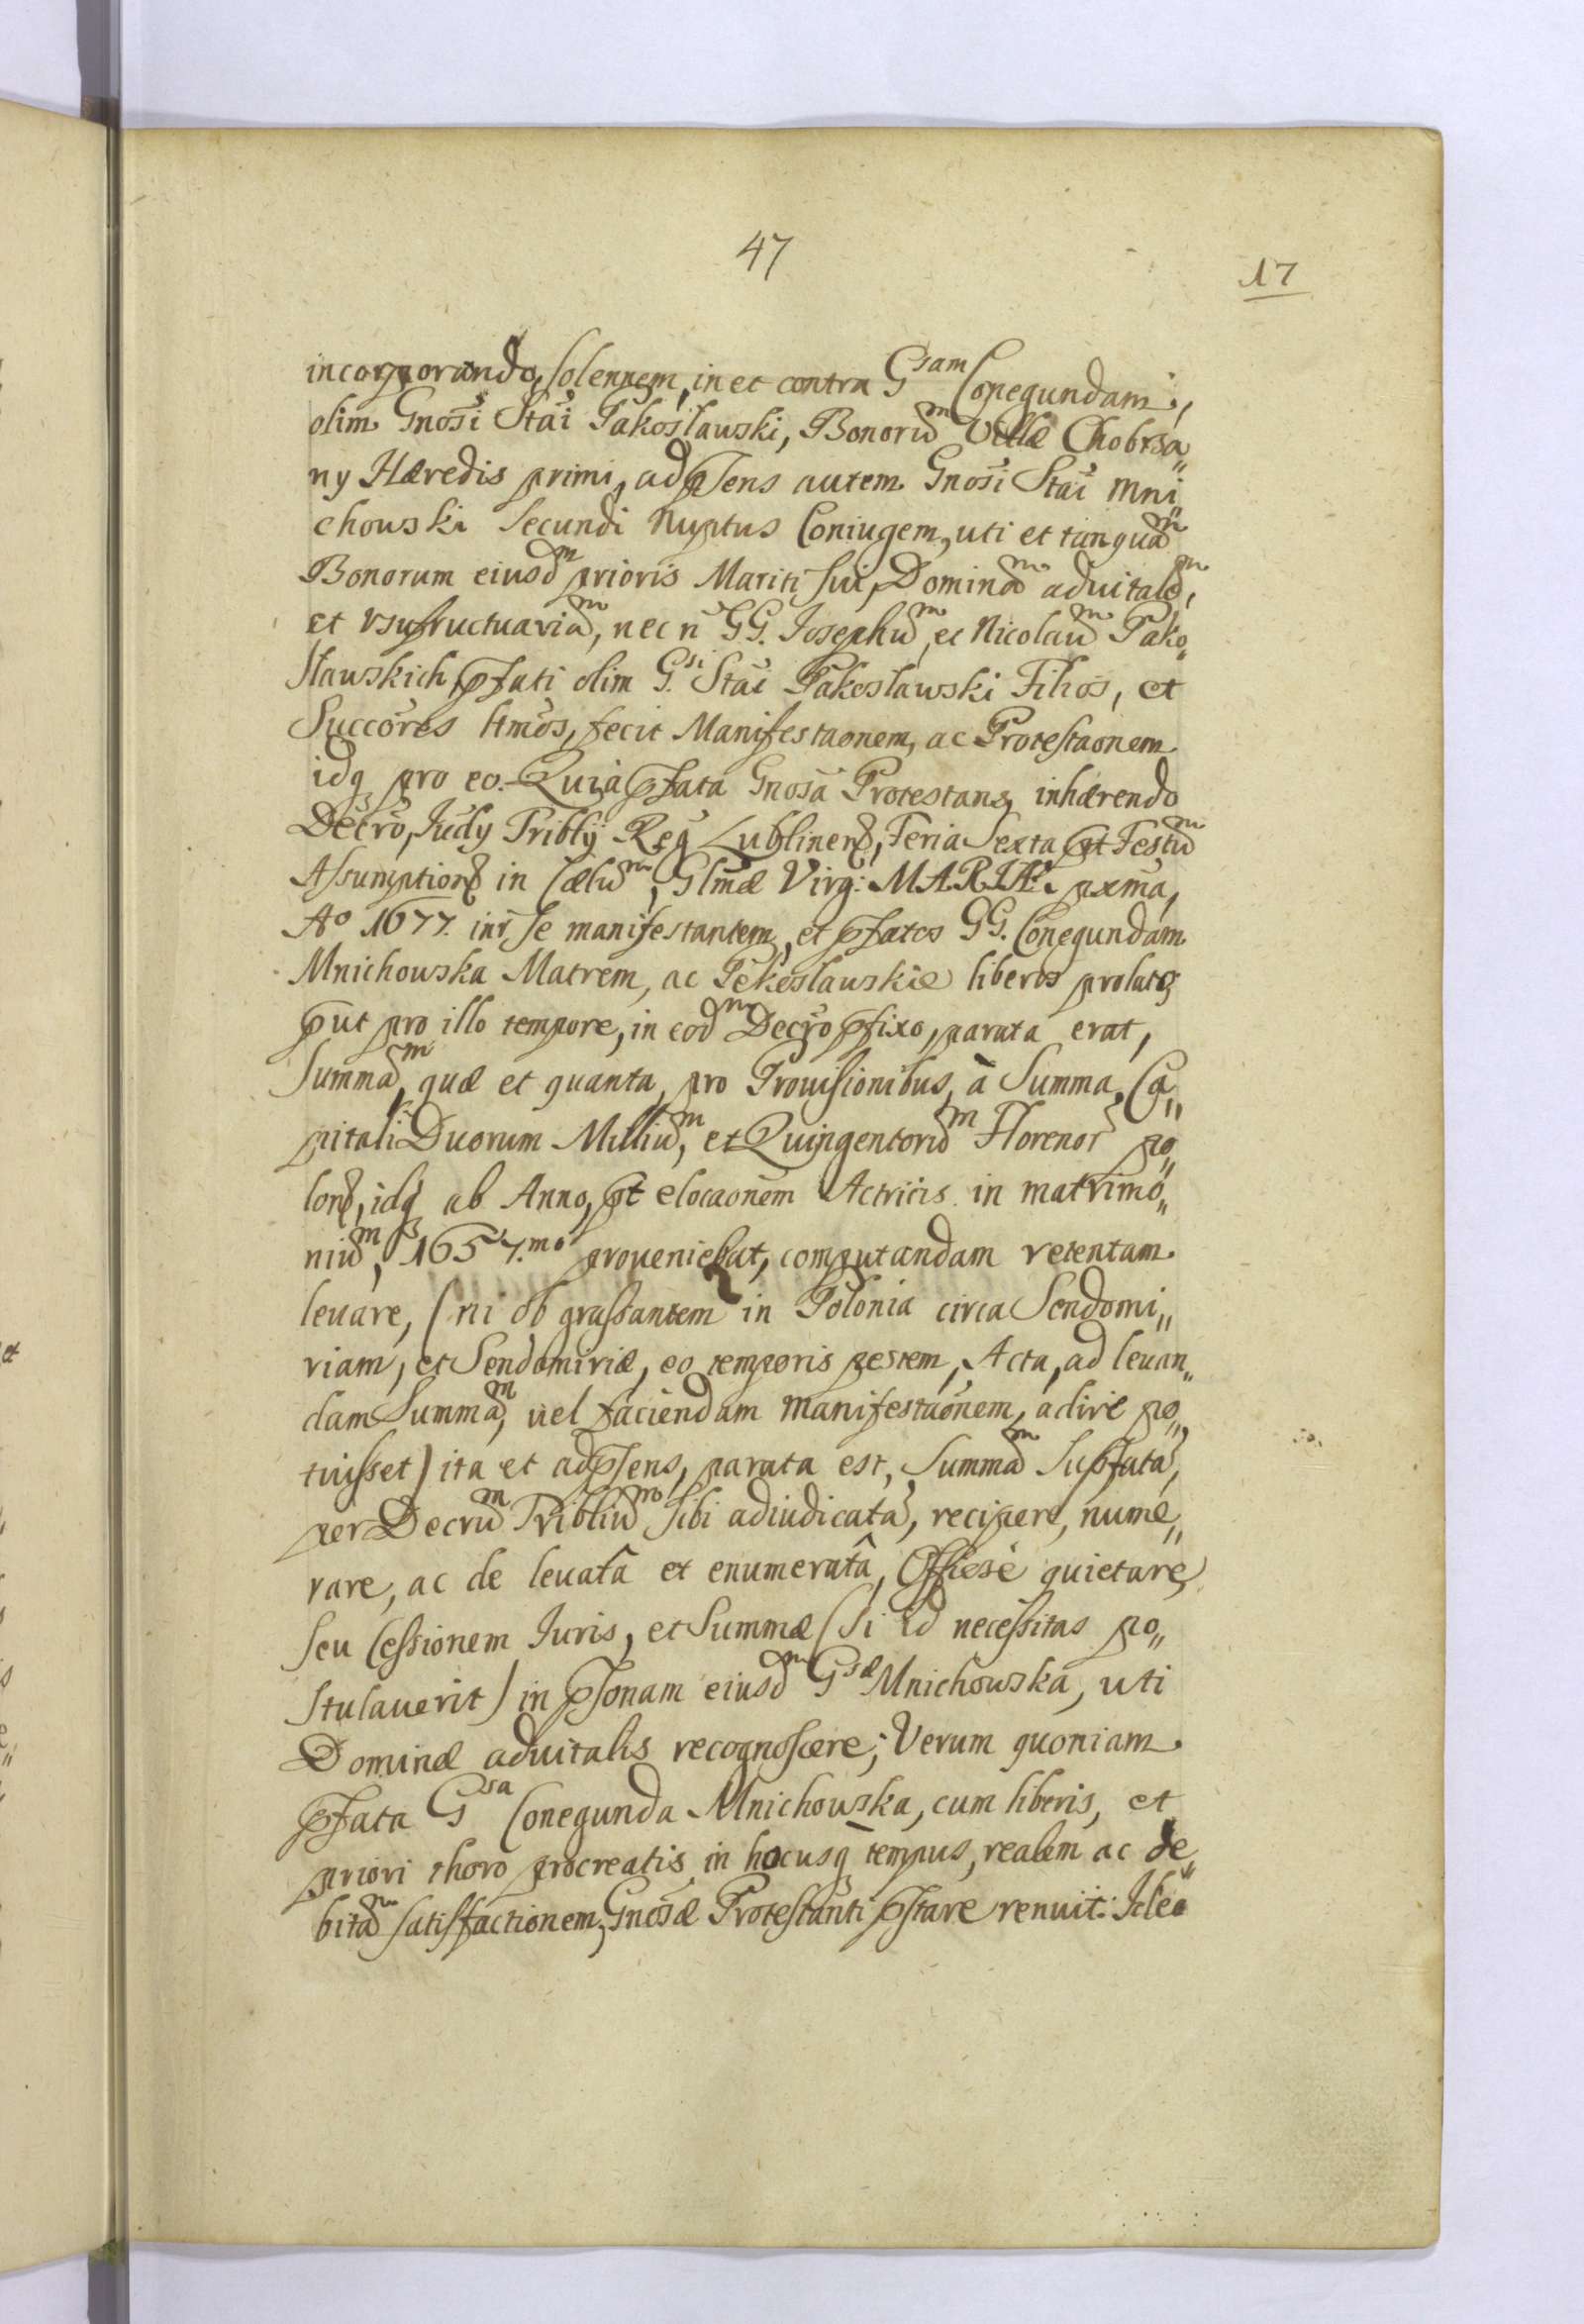 47
17
incorporando, solennem, in et contra Gsam Conegundam,
olim Gnosi Stai Pakosławski, Bonorum Villæ Chobrza„
ny Hæredis primi, ad psens autem Gnosi Stai Mni„
chowski secundi nuptus Coniugem, uti et tanquam
Bonorum eiusdm prioris Mariti sui, Dominam aduitalem,
et vsufructuariam, nec ñ GG. Josephum, et Nicolaum Pako„
sławskich, pfati olim G.si Stai Pakosławski Filios, et
Succōres ltmos, fecit Manifestaonem, ac Protestaonem
idq pro eo. Quia pfata Gnosa Protestans, inhærendo
Decro, Judy Triblij Reg Lublinens, Feria Sexta pt Festum
Assumptions in Cælum, Glmæ Virg: MARIÆ pxma,
Ao 1677. inr se manifestantem, et pfatos GG. Conegundam
Mnichowska Matrem, ac Pekosławskie liberos prolato,
put pro illo tempore, in eodm Decro pfixo, parata erat,
Summam, quæ et quanta, pro Prouisionibus, à Summa, Ca„
pitali Duorum Millium, et Quingentorum Florenor po„
lons, idq ab Anno, pt elocaonem Actricis in matrimo„
nium, 1657.mo proueniebat, computandam retentam
leuare, (ni ob grassantem in Polonia circa Sendomi„
riam, et Sendomiriæ, eo temporis pestem, Acta, ad leuan„
dam Summam, uel faciendam manifestaonem, adire po„
tuisset) ita et ad psens, parata est, Summam supfatã,
per Decrum Triblium sibi adiudicatã, recipere, nume„
rare, ac de leuatâ et enumeratâ, Officse quietare,
seu Cessionem Juris, et Summæ (si id necessitas po„
stulauerit) in psonam eiusdm Gsæ Mnichowska, uti
Dominæ aduitalis recognoscere; Verum quoniam
pfata Gsa Conegunda Mnichowska, cum liberis, et
priori thoro procreatis, in hocusq tempus, realem ac de„
bitam satisfactionem, Gnosæ Protestanti pstare renuit: Ideo